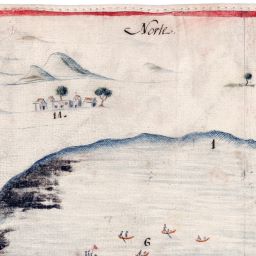 Norte.
11.
1
6